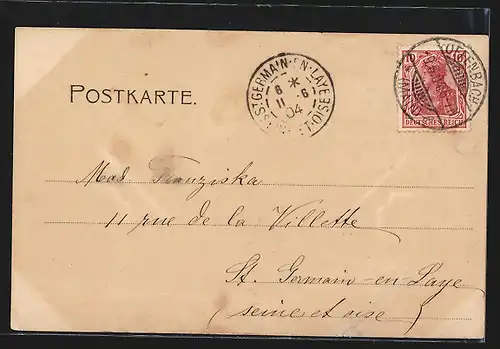 POSTKARTE.
ST GERMAIN-EN-LAYE
6 *
11 6
04
ET-OISE
OFFENBACH
10 10
DEUTSCHES REICH
Mad. Franziska
11 rue de la Villette
St. Germain-en-Laye
(seine et oise)